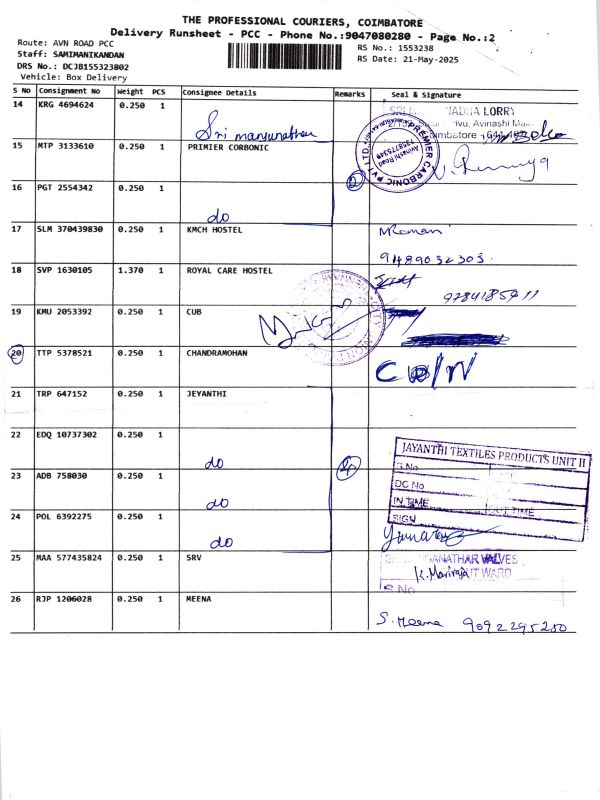 THE PROFESSIONAL COURIERS, COIMBATORE
Delivery Runsheet - PCC - Phone No.:9047080280 - Page No.:2
Route: AVN ROAD PCC
Staff: SAMIMANIKANDAN
DRS No.: DCJB155323802
Vehicle: Box Delivery
RS No.: 1553238
RS Date: 21-May-2025
S No Consignment No Weight PCS Consignee Details Remarks Seal & Signature
14 KRG 4694624 0.250 1 Sri manjunathan
LORRY
Avinashi Main
15 MTP 3133610 0.250 1 PRIMIER CORBONIC
PREMIER CARBONIC PVT LTD.
Avinashi Road
16 PGT 2554342 0.250 1 do
17 SLM 370439830 0.250 1 KMCH HOSTEL
9489032303.
18 SVP 1630105 1.370 1 ROYAL CARE HOSTEL
19 KMU 2053392 0.250 1 CUB
20 TTP 5378521 0.250 1 CHANDRAMOHAN
21 TRP 647152 0.250 1 JEYANTHI
22 EDQ 10737302 0.250 1 do
JAYANTHI TEXTILES PRODUCTS UNIT II
S.No
DC No
IN TIME OUT TIME
SIGN
23 ADB 758030 0.250 1 do
24 POL 6392275 0.250 1 do
25 MAA 577435824 0.250 1 SRV
GANATHAR VALVES
K. Mariraja
WARD
S.No
26 RJP 1206028 0.250 1 MEENA
S. Meena 9092295250